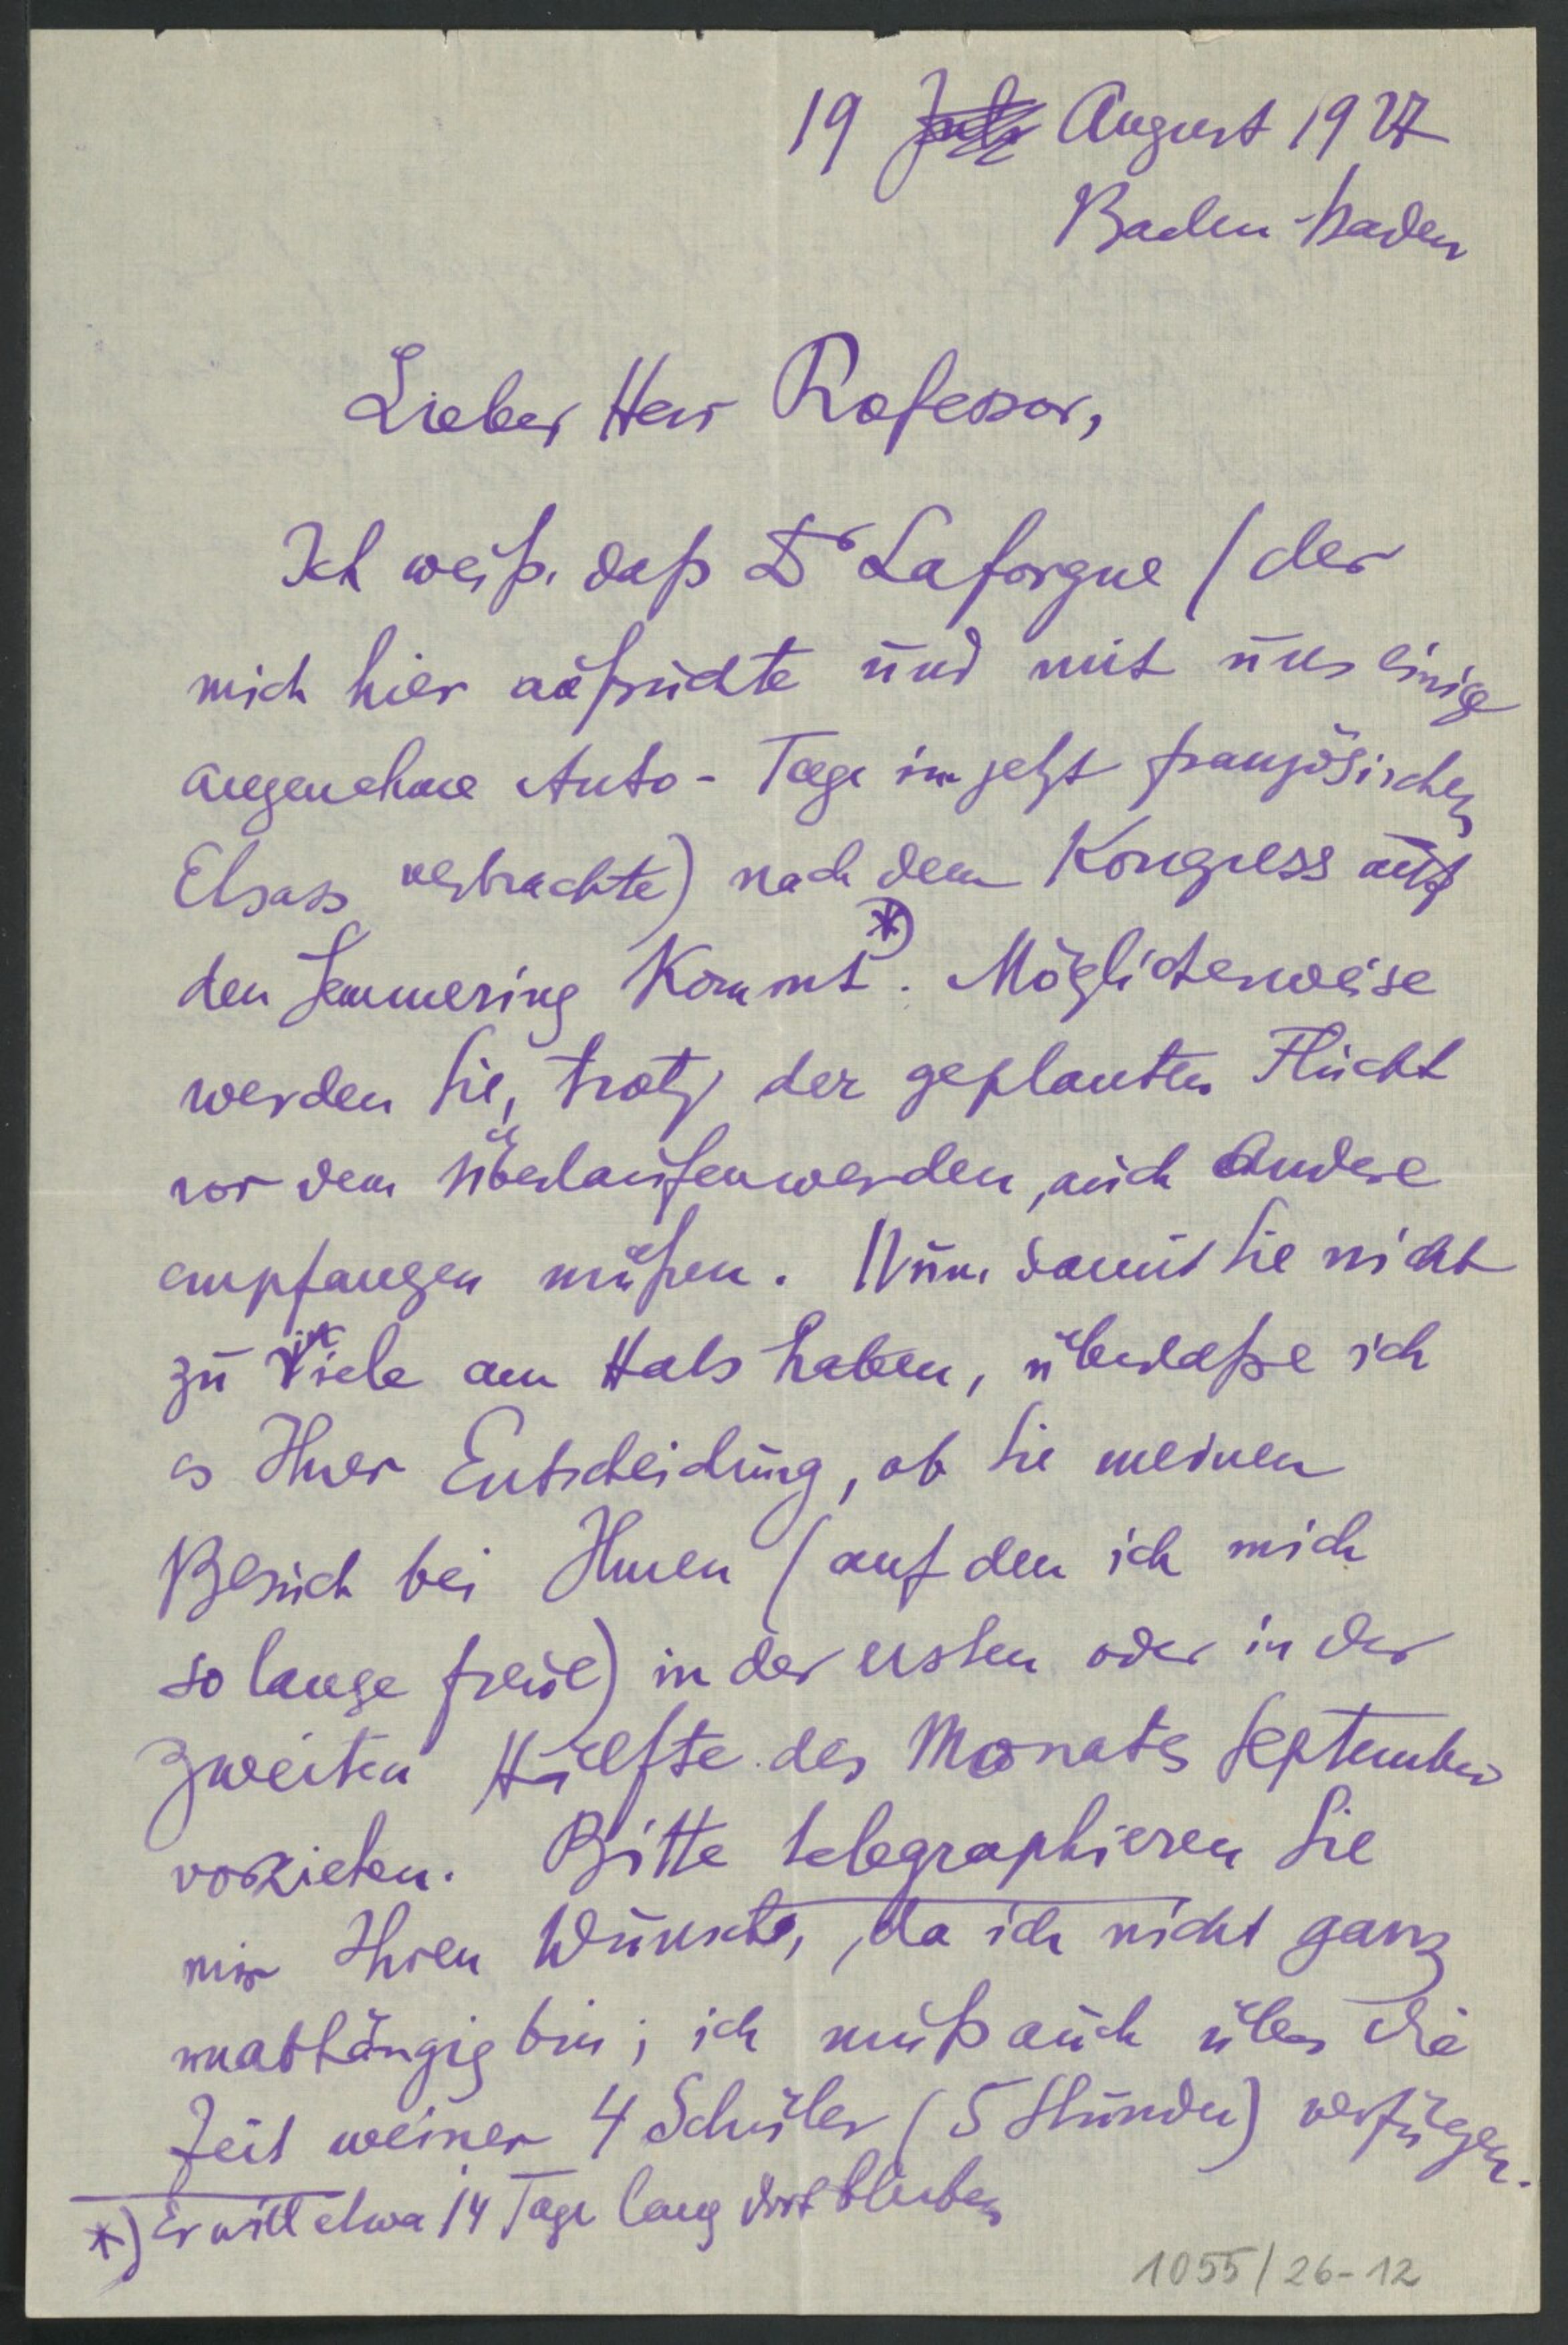 19 July August 1927
Baden-baden
Lieber Herr Professor,
Ich weiß, daß Dr Laforgue (der
mich hier aufsuchte und mit uns einige
angenehme Auto-Tage im jetzt französischen
Elsass verbrachte) nach dem Kongress auf
den Semmering kommt *). Möglicherweise
werden Sie, trotz der geplanten Flucht
vor dem Überlaufenwerden, auch Andere
empfangen müßen. Nun, damit Sie nicht
zu Viele am Hals haben, überlaße ich
es Ihrer Entscheidung, ob Sie meinen
Besuch bei Ihnen (auf den ich mich
so lange freue) in der ersten oder in der
zweiten Hälfte des Monats September
vorziehen. Bitte telegraphieren Sie
mir Ihren Wunsch, da ich nicht ganz
unabhängig bin; ich muß auch über die
Zeit meiner 4 Schüler (5 Stunden) verfügen.
*) Er will etwa 14 Tage lang dort bleiben
1055/26-12